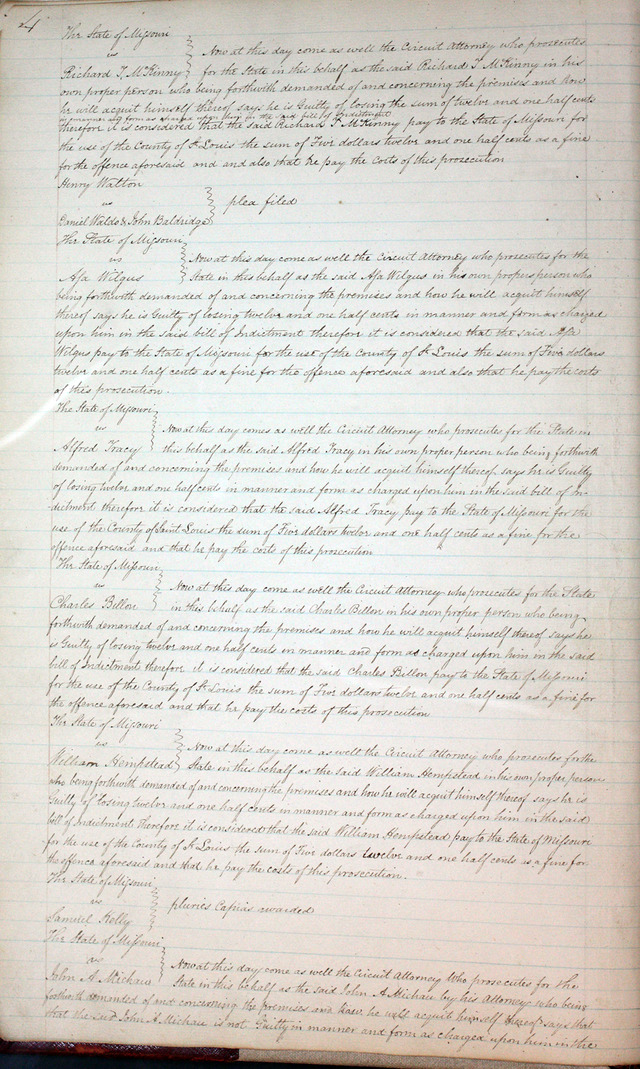 4
The State of Missouri
vs
Richard T. McKinny
Now at this day come as well the Circuit Attorney who prosecutes
for the State in this behalf as the said Richard T McKinny in his
own proper person who being forthwith demanded of and concerning the premises and how
he will acquit himself thereof says he is Guilty of losing the sum of twelve and one half cents
in manner and form as charged upon him in the said bill of Indictment
therefore it is considered that the said Richard T McKinny pay to the State of Missouri for
the use of the County of St Louis the sum of Five dollars twelve and one half cents as a fine
for the offence aforesaid and and also that he pay the Costs of this prosecution
Henry Walton
vs
Daniel Waldo & John Baldridge
plea filed
The State of Missouri
vs
Asa Wilgus
Now at this day come as well the Circuit Attorney who prosecutes for the
State in this behalf as the said Asa Wilgus in his own proper person who
being forthwith demanded of and concerning the premises and how he will acquit himself
thereof says he is Guilty of losing twelve and one half cents in manner and form as charged
upon him in the said bill of Indictment therefore it is considered that the said Asa
Wilgus pay to the State of Missouri for the use of the County of St Louis the sum of Five dollars
twelve and one half cents as a fine for the offence aforesaid and also that he pay the costs
of this prosecution.
The State of Missouri
vs
Alfred Tracy
Now at this day comes as well the Circuit Attorney who prosecutes for the State in
this behalf as the said Alfred Tracy in his own proper person who being forthwith
demanded of and concerning the premises and how he will acquit himself thereof says he is Guilty
of losing twelve and one half cents in manner and form as charged upon him in the said bill of In-
dictment therefore it is considered that the said Alfred Tracy pay to the State of Missouri for the
use of the County of Saint Louis the sum of Five dollars twelve and one half cents as a fine for the
offence aforesaid and that he pay the costs of this prosecution
The State of Missouri
vs
Charles Billon
Now at this day come as well the Circuit Attorney who prosecutes for the State
in this behalf as the said Charles Billon in his own proper person who being
forthwith demanded of and concerning the premises and how he will acquit himself thereof says he
is Guilty of losing twelve and one half cents in manner and form as charged upon him in the said
bill of Indictment therefore it is considered that the said Charles Billon pay to the State of Missouri
for the use of the County of St Louis the sum of Five dollars twelve and one half cents as a fine for
the offence aforesaid and that he pay the costs of this prosecution
The State of Missouri
vs
William Hempstead
Now at this day come as well the Circuit Attorney who prosecutes for the
State in this behalf as the said William Hempstead in his own proper person
who being forthwith demanded of and concerning the premises and how he will acquit himself thereof says he is
Guilty of losing twelve and one half cents in manner and form as charged upon him in the said
bill of Indictment therefore it is considered that the said William Hempstead pay to the State of Missouri
for the use of the County of St Louis the sum of Five dollars twelve and one half cents as a fine for
the offence aforesaid and that he pay the costs of this prosecution.
The State of Missouri
vs
Samuel Kelly
pluries Capias awarded
The State of Missouri
vs
John A Michau
Now at this day come as well the Circuit Attorney Who prosecutes for the
State in this behalf as the said John A Michau by his Attorney who being
forthwith demanded of and concerning the premises and how he will acquit himself thereof says that
that the said John A. Michau is not Guilty in manner and form as charged upon him in the